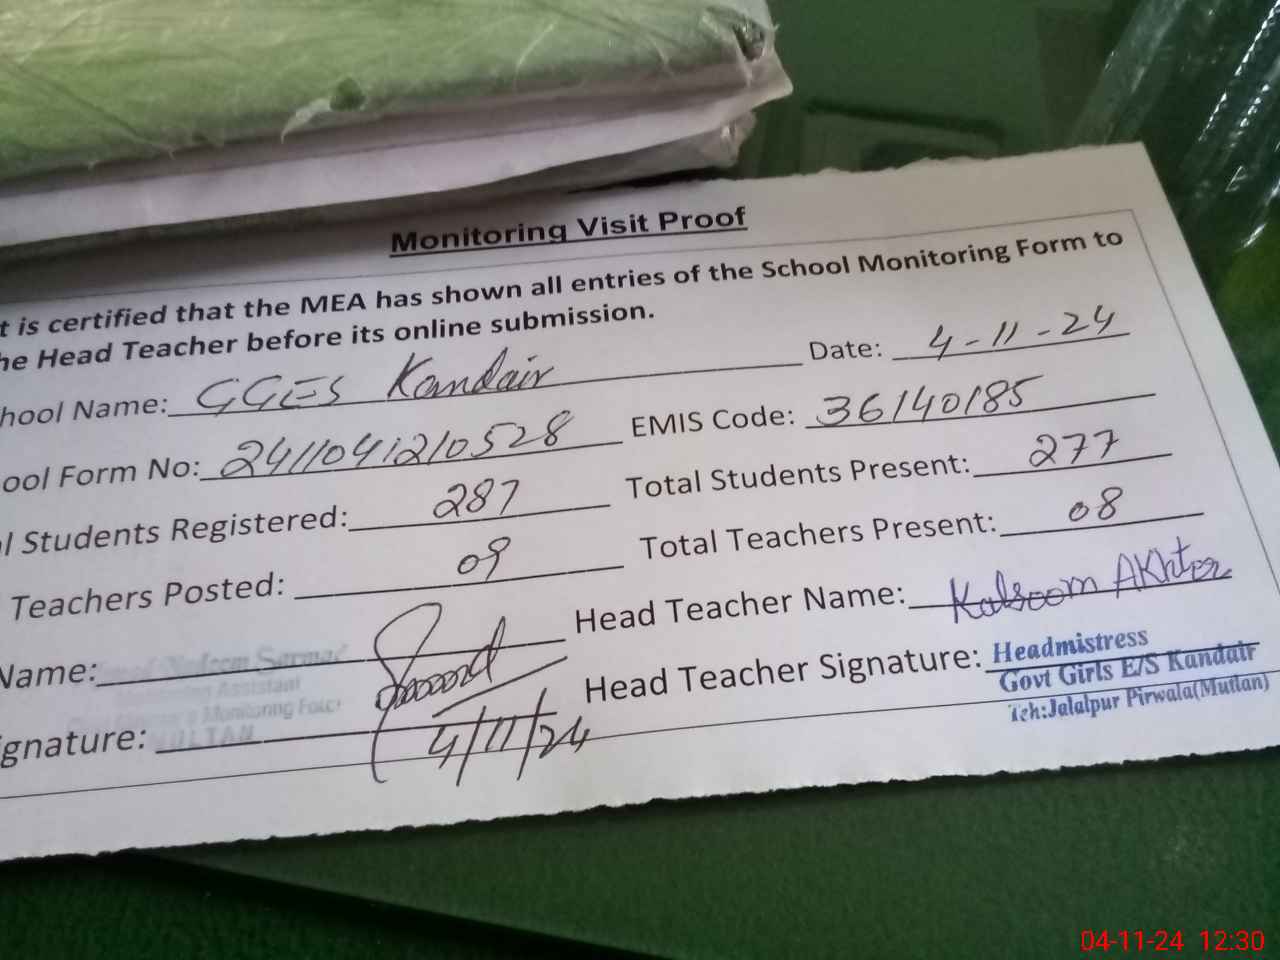 Monitoring Visit Proof
t is certified that the MEA has shown all entries of the School Monitoring Form to
he Head Teacher before its online submission.
hool Name: GGES Kandair Date: 4-11-24
ool Form No: 2411041210528 EMIS Code: 36140185
l Students Registered: 287 Total Students Present: 277
Teachers Posted: 09 Total Teachers Present: 08
Name: Nadeem Sarmad Head Teacher Name: Kalsoom Akhter
Monitoring Assistant
Monitoring Force
MULTAN
gnature: 4/11/24 Head Teacher Signature: Headmistress
Govt Girls E/S Kandair
Teh:Jalalpur Pirwala(Mutlan)
04-11-24 12:30